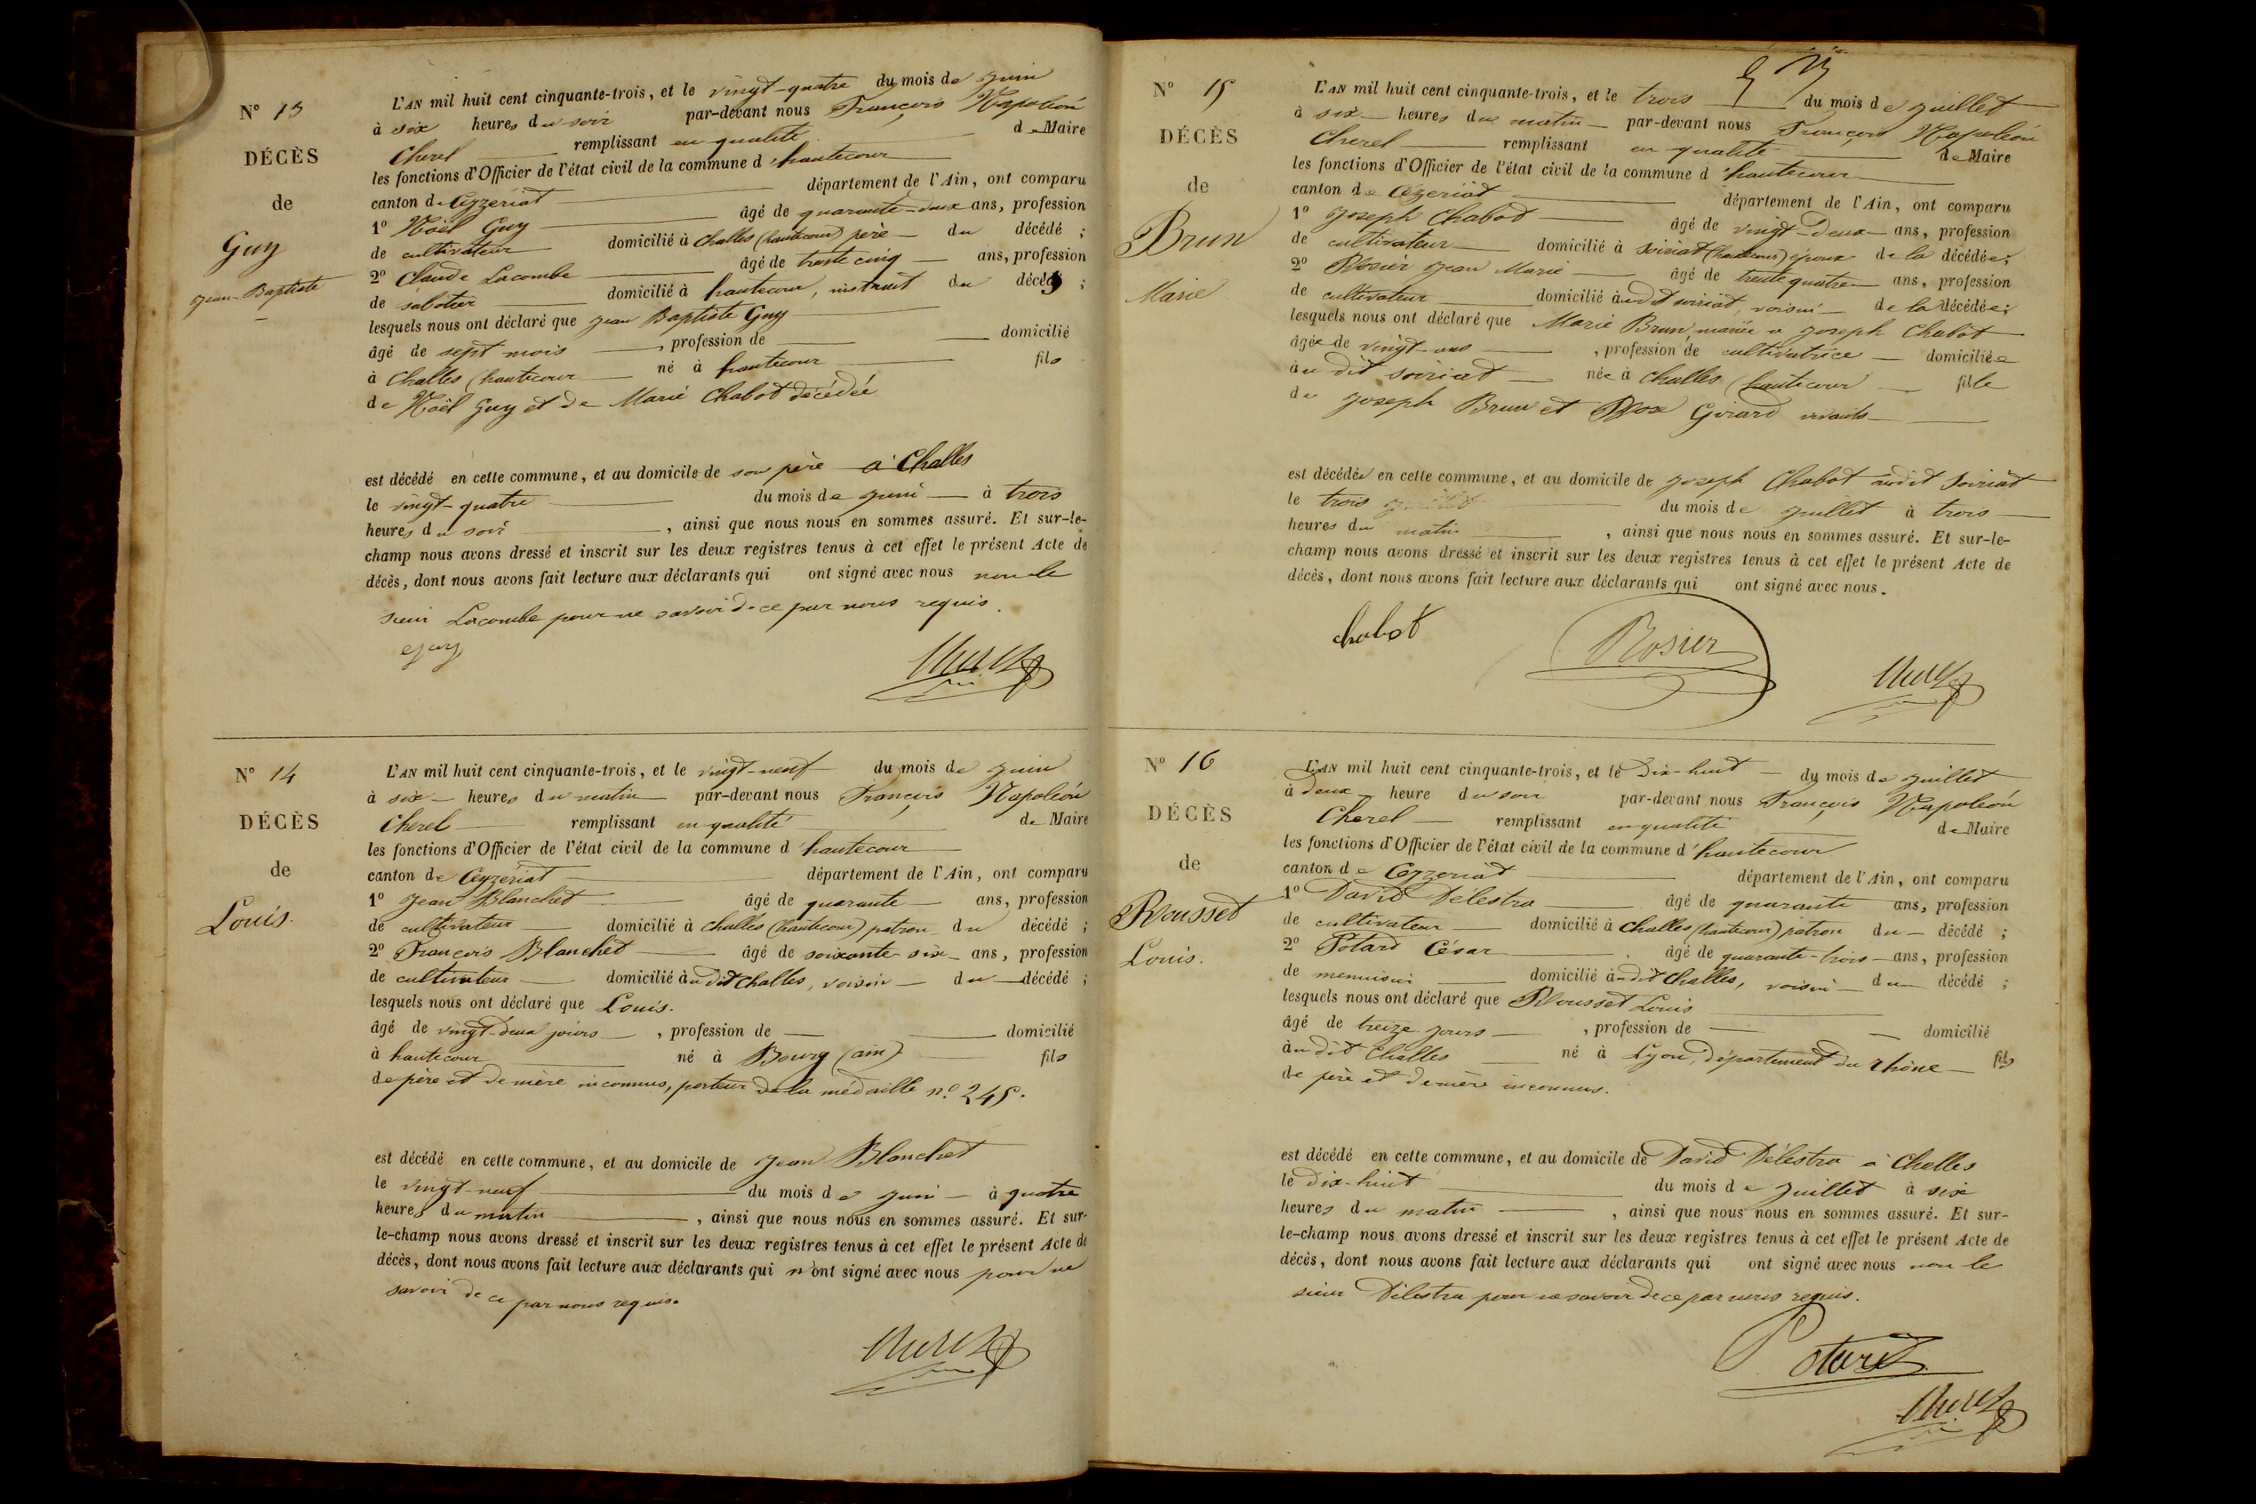 N° 13
DÉCÈS
de
Guy
Jean-Baptiste
L'AN mil huit cent cinquante-trois, et le vingt-quatre du mois de juin
à six heures du soir par-devant nous François Napoléon
Cherel remplissant en qualité de Maire
les fonctions d'Officier de l'état civil de la commune d'hautecour
canton de Ceyzeriat département de l'Ain, ont comparu
1° Noël Guy âgé de quarante-deux ans, profession
de cultivateur domicilié à Challes (hautecour) père du décédé ;
2° Claude Lacombe âgé de trente cinq ans, profession
de sabotier domicilié à hautecour, instruit du décédé ;
lesquels nous ont déclaré que Jean Baptiste Guy
âgé de sept mois, profession de domicilié
à Challes (hautecour né à hautecour fils
de Noël Guy et de Marie Chabot décédée
est décédé en cette commune, et au domicile de son père à Challes
le vingt-quatre du mois de juin à trois
heures du soir, ainsi que nous nous en sommes assuré. Et sur-le-
champ nous avons dressé et inscrit sur les deux registres tenus à cet effet le présent Acte de
décès, dont nous avons fait lecture aux déclarants qui ont signé avec nous non le
sieur Lacombe pour ne savoir de ce par nous requis.
Guy
Cherel
N° 14
DÉCÈS
de
Louis.
L'AN mil huit cent cinquante-trois, et le vingt-neuf du mois de juin
à six heures du matin par-devant nous François Napoléon
Cherel remplissant en qualité de Maire
les fonctions d'Officier de l'état civil de la commune d'hautecour
canton de Ceyzeriat département de l'Ain, ont comparu
1° Jean Blanchet âgé de quarante ans, profession
de cultivateur domicilié à Challes (hautecour) patron du décédé ;
2° François Blanchet âgé de soixante six ans, profession
de cultivateur domicilié audit Challes, voisin du décédé ;
lesquels nous ont déclaré que Louis.
âgé de vingt-deux jours, profession de domicilié
à hautecour né à Bourg (ain) fils
de père et de mère inconnus, porteur de la médaille n° 245.
est décédé en cette commune, et au domicile de Jean Blanchet
le vingt-neuf du mois de juin à quatre
heures du matin, ainsi que nous nous en sommes assuré. Et sur-
le-champ nous avons dressé et inscrit sur les deux registres tenus à cet effet le présent Acte de
décès, dont nous avons fait lecture aux déclarants qui n'ont signé avec nous pour ne
savoir de ce par nous requis.
Cherel
N° 15
DÉCÈS
de
Brun
Marie
L'AN mil huit cent cinquante-trois, et le trois du mois de juillet
à six heures du matin par-devant nous François Napoléon
Cherel remplissant en qualité de Maire
les fonctions d'Officier de l'état civil de la commune d'hautecour
canton de Ceyzeriat département de l'Ain, ont comparu
1° Joseph Chabot âgé de vingt-deux ans, profession
de cultivateur domicilié à Soiriat (hautecour) époux de la décédée ;
2° Rosier Jean Marie âgé de trente quatre ans, profession
de cultivateur domicilié audit soiriat, voisin de la décédée ;
lesquels nous ont déclaré que Marie Brun, mariée à Joseph Chabot
âgée de vingt-ans, profession de cultivatrice domiciliée
audit soiriat née à Challes (hautecour fille
de Joseph Brun et Rose Girard vivants
est décédée en cette commune, et au domicile de Joseph Chabot audit Soiriat
le trois du mois de juillet à trois
heures du matin, ainsi que nous nous en sommes assuré. Et sur-le-
champ nous avons dressé et inscrit sur les deux registres tenus à cet effet le présent Acte de
décès, dont nous avons fait lecture aux déclarants qui ont signé avec nous.
chabot Rosier Cherel
N° 16
DÉCÈS
de
Rousset
Louis.
L'AN mil huit cent cinquante-trois, et le Dix-huit du mois de juillet
à deux heure du soir par-devant nous François Napoléon
Cherel remplissant en qualité de Maire
les fonctions d'Officier de l'état civil de la commune d'hautecour
canton de Ceyzeriat département de l'Ain, ont comparu
1° David Délestra âgé de quarante ans, profession
de cultivateur domicilié à Challes (hautecour) patron du décédé ;
2° Potard César âgé de quarante-trois ans, profession
de menuisier domicilié audit Challes, voisin du décédé ;
lesquels nous ont déclaré que Rousset Louis
âgé de treize jours, profession de domicilié
audit Challes né à Lyon, département du rhône fils
de père et de mère inconnus.
est décédé en cette commune, et au domicile de David Délestra à Challes
le dix-huit du mois de juillet à six
heures du matin, ainsi que nous nous en sommes assuré. Et sur-
le-champ nous avons dressé et inscrit sur les deux registres tenus à cet effet le présent Acte de
décès, dont nous avons fait lecture aux déclarants qui ont signé avec nous non le
sieur Délestra pour ne savoir de ce par nous requis.
Potard
Cherel